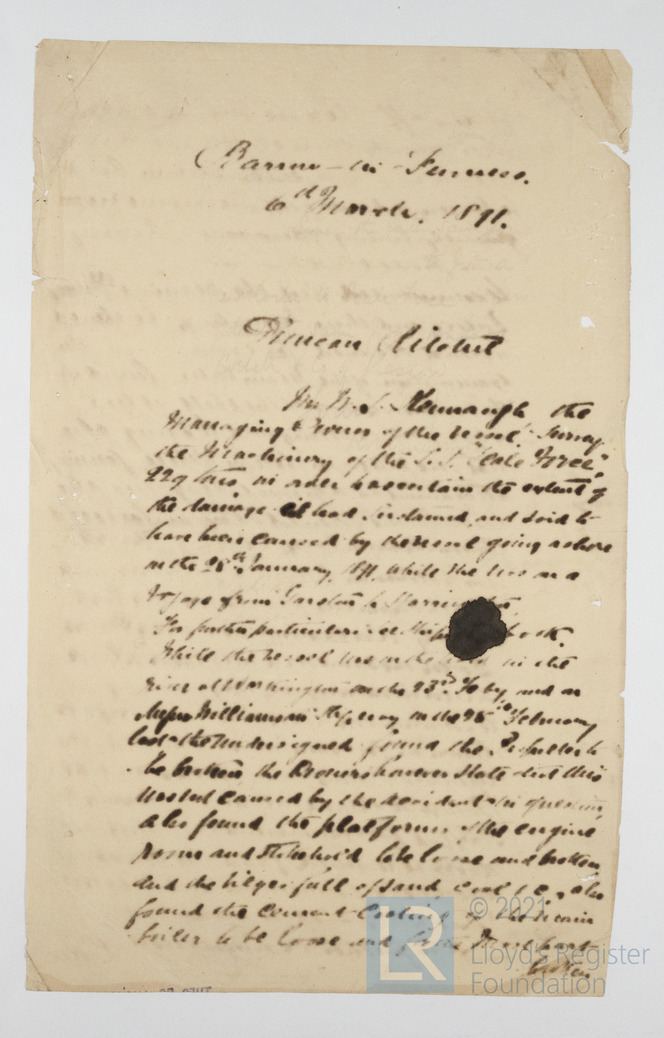 Barrow-in-Furness.
6th March, 1891.
Duncan
the
Managing Owner of the vessel, Survey
the Machinery of the S.S.
229 tons in order to ascertain the extent of
the damage it had sustained and said to
have been caused by the vessel going ashore
on the 28th January, 1891, while she was on a
voyage from Garston to Harrington.
For further particulars see Ship
While the vessel was on the in the
river at Workington on the 23rd Feby and on
Messrs Williamson Slipway on the 28th February
last the Undersigned found the Propeller to
be broken the Owners however state that this
was not caused by the accident in question,
also found the platforms of the engine
room and stokehold to be loose and broken
and the bilges full of sand, coal &c, also
found the cement coating of the main
boiler to be loose and from
broken
© 2021
LR
Lloyd's Register
Foundation